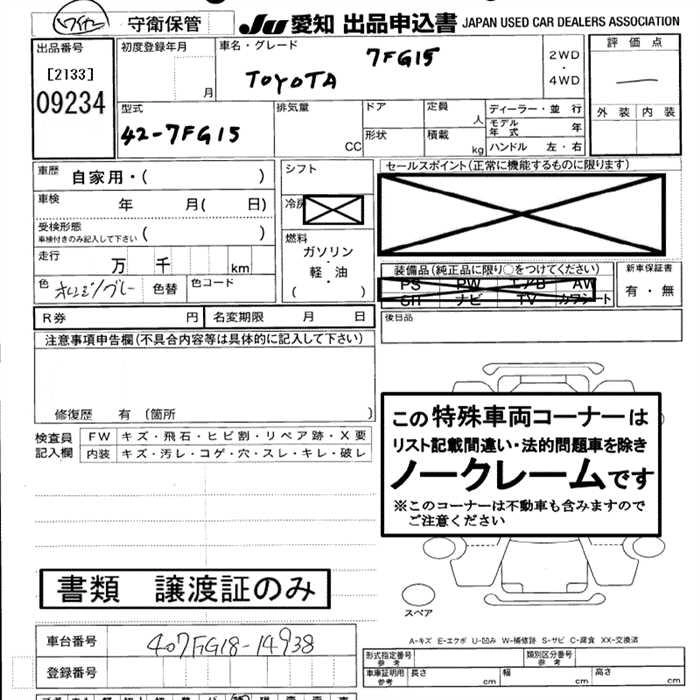 ワイヤー 守衛保管 JU 愛知 出品申込書 JAPAN USED CAR DEALERS ASSOCIATION
出品番号
[2133]
09234
初度登録年月
月
車名・グレード
7FG15
TOYOTA
2WD
・
4WD
評価点
外装 内装
型式
42-7FG15
排気量
CC
ドア
形状
定員
人
積載
kg
ディーラー・並行
モデル年式 年
ハンドル 左・右
車歴 自家用・( )
車検 年 月( 日)
受検形態
車検付きのみ記入して下さい ( )
走行 万 千 km
色 オレンジ/グレー 色替 色コード
シフト
冷房
燃料
ガソリン
・
軽・油
( )
セールスポイント(正常に機能するものに限ります)
装備品(純正品に限り○をつけてください)
PS PW エアB AW
SR ナビ TV カワシート
新車保証書
有・無
R券 円 名変期限 月 日
後日品
注意事項申告欄(不具合内容等は具体的に記入して下さい)
修復歴 有 (箇所 )
検査員記入欄
FW キズ・飛石・ヒビ割・リペア跡・X要
内装 キズ・汚レ・コゲ・穴・スレ・キレ・破レ
この特殊車両コーナーは
リスト記載間違い・法的問題車を除き
ノークレームです
※このコーナーは不動車も含みますので
ご注意ください
スペア
書類 譲渡証のみ
A-キズ E-エクボ U-凹み W-補修跡 S-サビ C-腐食 XX-交換済
車台番号 407FG18-14938
登録番号
形式指定番号
参考
類別区分番号
参考
車庫証明用
参考
長さ cm 幅 cm 高さ cm